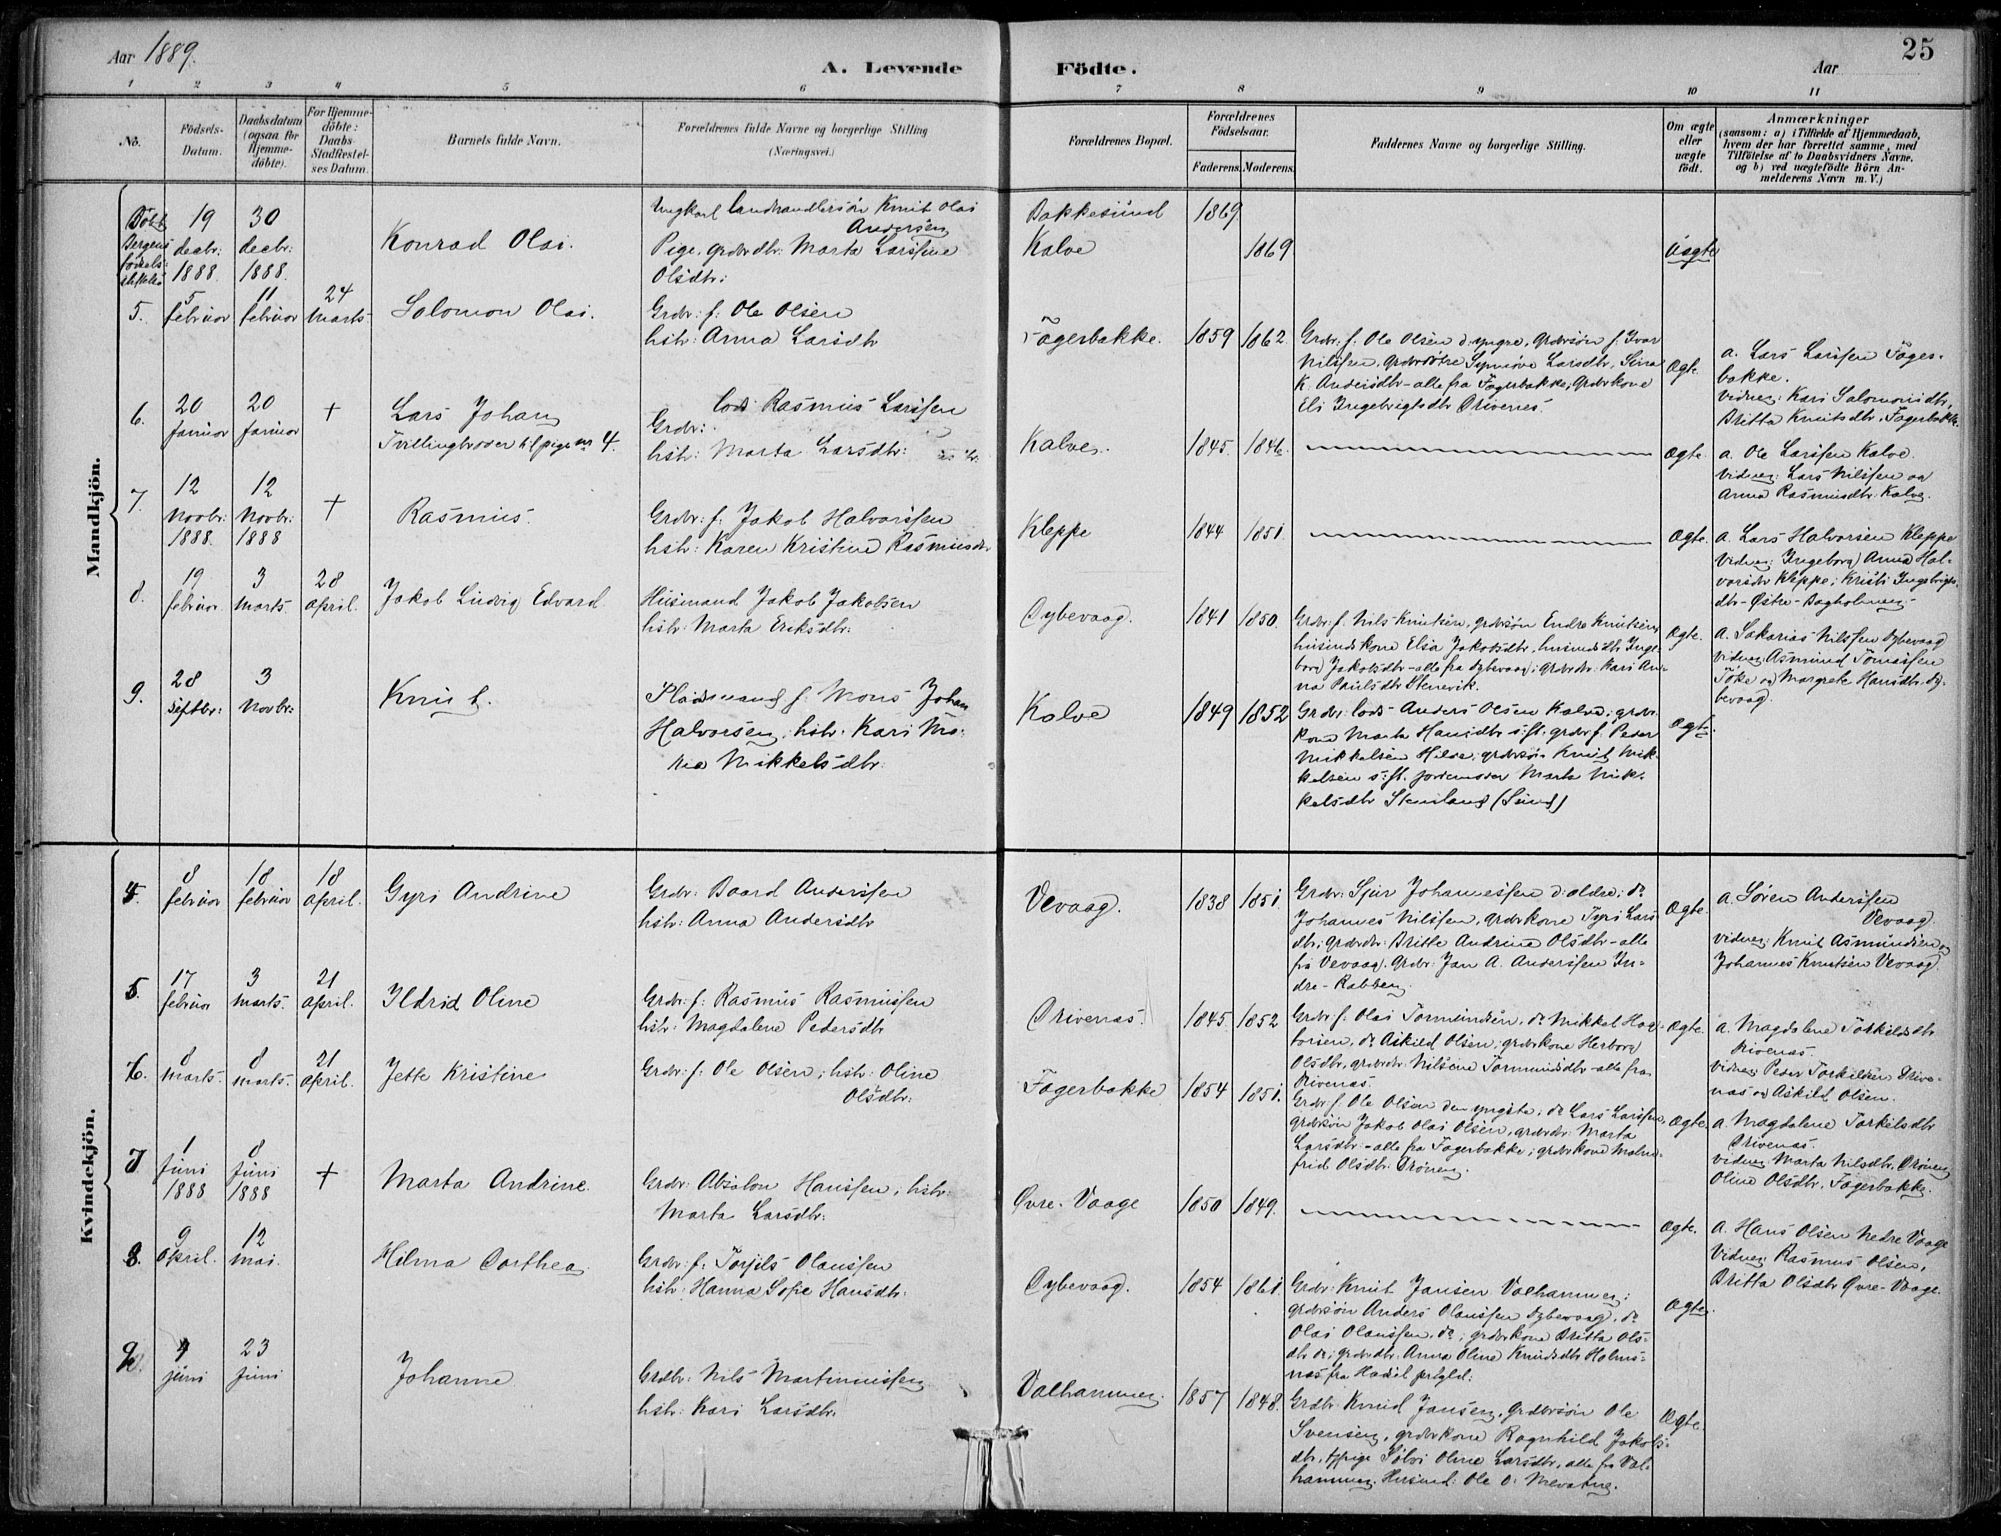 Aar 1889.
A. Levende Födte.
Aar
25
1 2 3 4 5 6 7 8 9 10 11
No.
Födsels-Datum.
Daabsdatum (ogsaa for Hjemme-döbte).
For Hjemme-döbte: Daabs-Stadfæstel-ses Datum.
Barnets fulde Navn.
Forældrenes fulde Navne og borgerlige Stilling (Næringsvei.)
Forældrenes Bopæl.
Forældrenes Födselsaar.
Faderens. Moderens.
Faddernes Navne og borgerlige Stilling.
Om ægte eller uægte födt.
Anmærkninger
(saasom: a) i Tilfælde af Hjemmedaab, hvem der har forrettet samme, med Tilföielse af to Daabsvidners Navne, og b) ved uægtefödte Börn An-melderens Navn m. V.)
Mandkjön.
Döbt Bergens
19 decbr: 1888
30 decbr: 1888.
Konrad Olai.
Ungkarl Landhandlersön Knut Olai Andersen
Pige, grdbrdtr. Marta Larsine
Olsdtr:
Bakkesund 1869
Kalve 1869
Uægte
5.
5 februar
11 februar
24 Marts
Salomon Olai.
Grdbr: f: Ole Olsen
hstr: Anna Larsdtr
Fagerbakke. 1859 1862.
Grdbr: f. Ole Olsen d. yngre, grdbrsön f. Ivar
Nilssen, grdbrdötre Synnöve Larsdtr, Sina
K. Andersdtr - alle fra Fagerbakke, grdbrkone
Eli Ingebrigtsdtr Drivenes.
Ægte.
a. Lars Larssen Fager-
bakke.
Vidner: Kari Salomonsdtr,
Britta Knutsdtr, Fagerbakke.
6.
20 Januar
20 Januar
+
Lars Johan
Tvillingbroder til pige nr 4.
Lods Rasmus Larssen
Grdbr:
hstr: Marta Larsdtr:
Kalve. 1845. 1846.
Ægte.
a. Ole Larssen Kalve.
Vidner: Lars Nilssen og
Anna Rasmusdtr. Kalve.
7.
12 Novbr: 1888.
12 Novbr: 1888
+
Rasmus.
Grdbr: f: Jakob Halvorssen
hstr: Karen Kristine Rasmusdtr
Kleppe 1844 1851.
Ægte.
a. Lars Halvorsen Kleppe
Vidner: Ingeborg Anna Hal-
vorsdtr Kleppe; Kristi Ingebrigts-
dtr - Östre-Bagholmen
8.
19 februar.
3 marts.
28 april.
Jakob Ludvig Edvard.
Husmand Jakob Jakobsen
hstr: Marta Eriksdtr:
Dybevaag. 1841 1850.
Grdbr: f. Nils Knutsen, grdbrsön Endre Knutsen,
husmdskone Elsa Jakobsdtr, husmdsdtr Inge-
borg Jakobsdtr - alle fra Dybevaag; grdbrdtr. Kari An-
na Paulsdtr Stenevik.
Ægte.
a. Sakarias Nilssen Dybevaag
Vidner: Asmund Tomassen
Töke og Margrete Hansdtr. Dy-
bevaag.
9.
28 Septbr:
3 Novbr:
Knut.
Pladsmand f. Mons Johan
Halvorsen, hstr. Kari Ma-
ria Mikkelsdtr.
Kalve 1849 1852
Grdbr: lods Anders Olsen Kalve; grdbr.
kone Marta Hansdtr s:st. grdbr f. Peder
Mikkelsen Hilde; grdbrsön Knut Mik-
kelsen s:st. jordemoder Marta Mik-
kelsdtr Stensland (Sund)
Ægte.
Kvindekjön.
4.
8 februar
18 februar
18 april.
Gyri Andrine
Grdbr: Baard Anderssen
hstr: Anna Andersdtr
Vevaag. 1838 1851.
Grdbr: Sjur Johannessen d: ældre; do
Johannes Nilssen, grdbrkone Gyri Lars-
dtr; grdbrdtr: Britte Andrine Olsdtr - alle
fra Vevaag. Grdbr: Jan A. Anderssen In-
dre-Rabben.
Ægte.
a. Sören Anderssen
Vevaag.
Vidner: Knut Asmundsen og
Johannes Knutsen Vevaag.
5.
17 februar
3 marts.
21 april.
Ildrid Oline
Grdbr: f: Rasmus Rasmussen
hstr: Magdalene Pedersdtr
Drivenas. 1845. 1852
Grdbr f: Olai Tormundsen, do Mikkel Haa-
korsen, do Askild Olsen; grdbrkone Herborg
Olsdtr, grdbrdtr: Nilsine Tormundsdtr - alle fra
Drivenas.
Ægte.
a. Magdalene Torkildsdtr
Drivenas.
Vidner Peder Torkildsen Drive-
nas og Askild Olsen.
6.
8 marts.
8 marts.
21 april.
Jette Kristine
Grdbr: f: Ole Olsen; hstr: Oline
Olsdtr:
Fagerbakke 1854 1851.
Grdbr f. Ole Olsen den yngste; do Lars Larssen,
grdbrsön Jakob Olai Olsen, grdbrdtr: Marta
Larsdtr - alle fra Fagerbakke; grdbrkone Malm-
frid Olsdtr. Drönen.
Ægte.
a. Magdalene Torkelsdtr
Drivenas.
Vidner Marta Nilsdtr. Drönen
Oline Olsdtr. Fagerbakke.
7
1 Juni 1888
8 Juni 1888
+
Marta Andrine.
Grdbr: Absalon Hanssen, hstr:
Marta Larsdtr:
Övre-Vaage 1850 1849.
Ægte.
a. Hans Olsen Nedre Vaage
Vidner Rasmus Olsen,
Britta Olsdtr Övre-Vaage.
8.
9 april.
12 mai.
Hilma Dorthea
Grdbr: f: Torjils Olaussen
hstr: Hanna Sofie Hansdtr:
Dybevaag. 1854 1861.
Grdbr: Knut Jansen Valhammer;
grdbrsön Anders Olaussen Dybevaag, do
Olai Olaussen, do; grdbrkone Britta Ols-
dtr do; grdbrdtr: Anna Oline Knudsdtr Holms-
nas fra Hadsel prstgld:
Ægte.
9.
4 juni
23 Juni
Johanne
Grdbr: Nils Martinussen
hstr: Kari Larsdtr.
Valhammer. 1857 1848.
Grdbr: Knud Jansen, Grdbrsön Ole
Svensen, grdbrkone Ragnhild Jakobs-
dtr, Sölvi Oline Larsdtr, alle fra Val-
hammer. Husmd: Ole O: Mevatne.
Ægte.